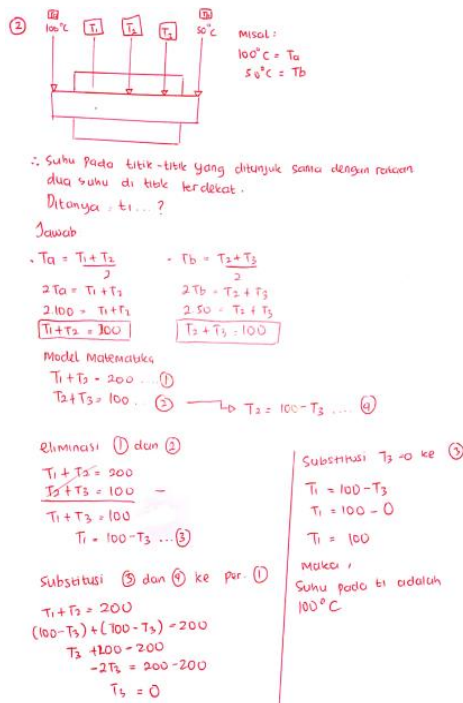 ②
Ta
100°C
T1
T2
T3
Tb
50°C
Misal :
100°C = Ta
50°C = Tb
∴ Suhu Pada titik-titik yang ditunjuk sama dengan rataan
dua suhu di titik terdekat.
Ditanya , t1 ... ?
Jawab
. Ta = T1 + T2 / 2
2Ta = T1 + T2
2.100 = T1 + T2
T1 + T2 = 200
- Tb = T2 + T3 / 2
2Tb = T2 + T3
2.50 = T2 + T3
T2 + T3 = 100
Model Matematika
T1 + T2 = 200 ... ①
T2 + T3 = 100 . ② → T2 = 100 - T3 .... ④
eliminasi ① dan ②
T1 + T2 = 200
T2 + T3 = 100 -
T1 + T3 = 100
T1 = 100 - T3 ... ③
Substitusi ③ dan ④ ke per. ①
T1 + T2 = 200
(100 - T3) + (100 - T3) = 200
T3 + 200 - 200
-2T3 = 200 - 200
T3 = 0
Substitusi T3 = 0 ke ③
T1 = 100 - T3
T1 = 100 - 0
T1 = 100
Maka ,
Suhu pada t1 adalah
100°C